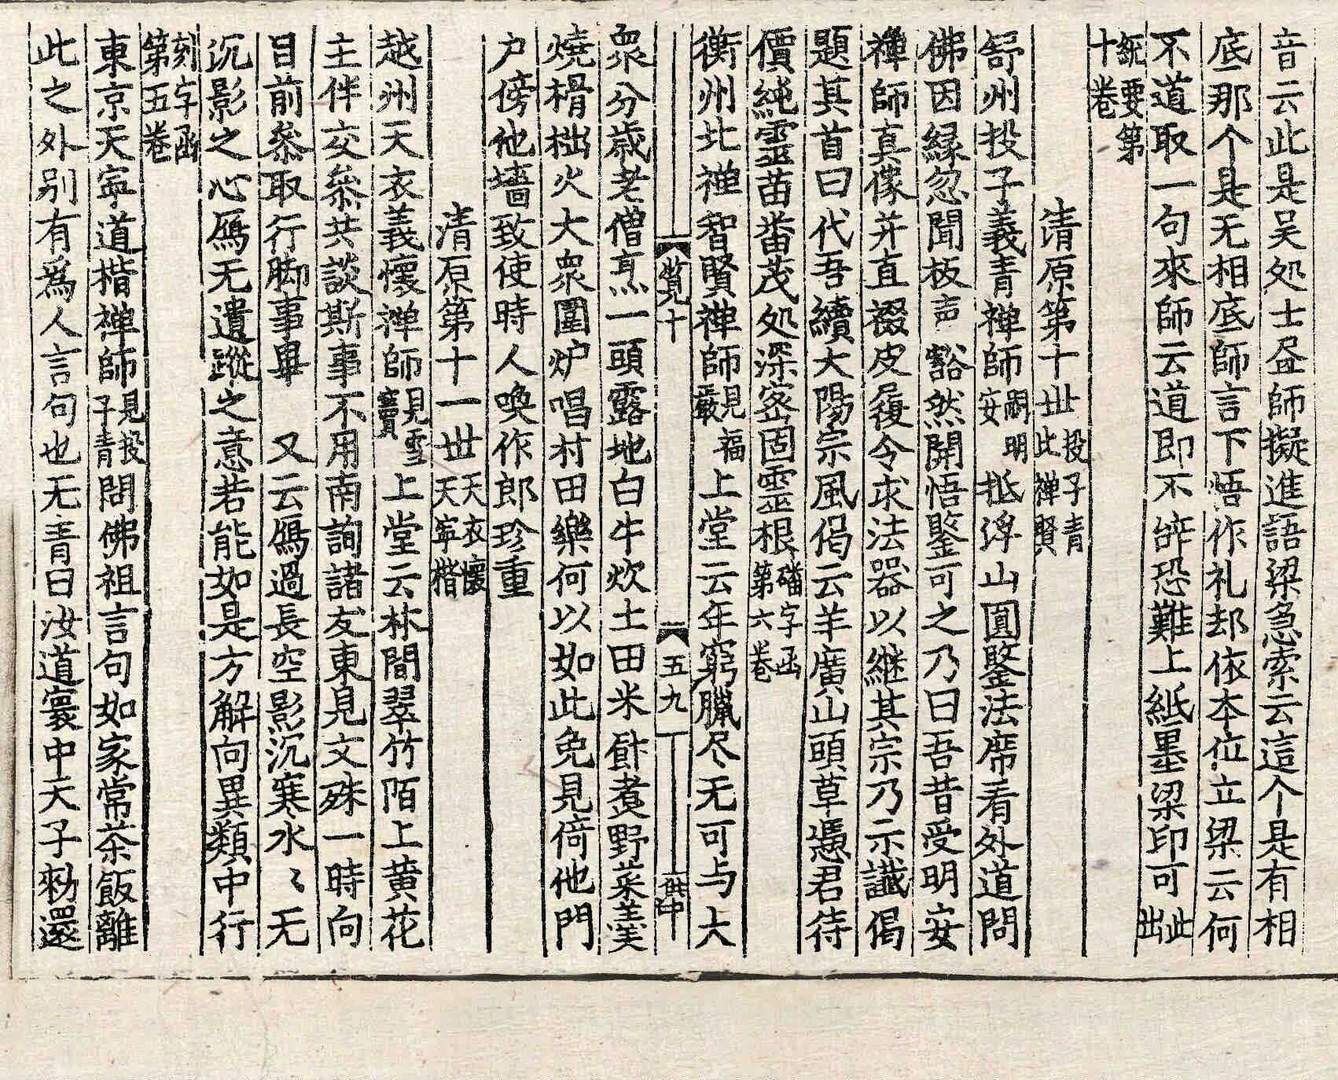 音云此是吴处士𦘕師擬進語梁急索云這个是有相
底那个是无相底師言下悟作礼却依本位立梁云何
不道取一句來師云道即不辝恐難上紙墨梁印可此出
統要第十卷
清原第十世投子青此禅賢
舒州投子義青禅師嗣明安抵浮山圎鑒法席看外道問
佛因縁忽聞板声豁然開悟鑒可之乃曰吾昔受明安
禅師真像并直裰皮履令求法器以継其宗乃示讖偈
題其首曰代吾續大陽宗風偈云羊廣山頭草憑君待
價純靈苗畨茂处深密固霊根磻字函第六卷
衡州北禅智賢禅師見福嚴上堂云年窮臘尽无可与大
覧十
五九
供中
衆分歳老僧烹一頭露地白牛炊土田米餅煮野菜羙
燒榾柮火大衆圍炉唱村田樂何以如此免見倚他門
户傍他墻致使時人喚作郎珍重
清原第十一世天衣懷天寧楷
越州天衣義懷禅師見雪竇上堂云林間翠竹陌上黄花
主伴交叅共談斯事不用南詢諸友東見文殊一時向
目前叅取行脚事畢 又云鴈過長空影沉寒水〻无
沉影之心鴈无遺蹤之意若能如是方解向異類中行
刻字函第五卷
東京天寧道楷禅師見投子青問佛祖言句如家常茶飯離
此之外别有爲人言句也无青曰汝道寰中天子勑還